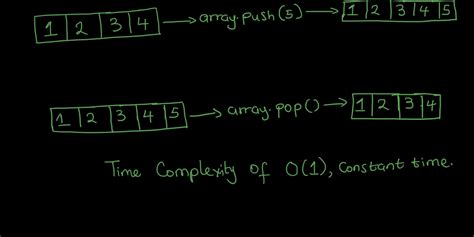 1 2 3 4 → array.push(5) → 1 2 3 4 5
1 2 3 4 5 → array.pop() → 1 2 3 4
Time Complexity of O(1), constant time.